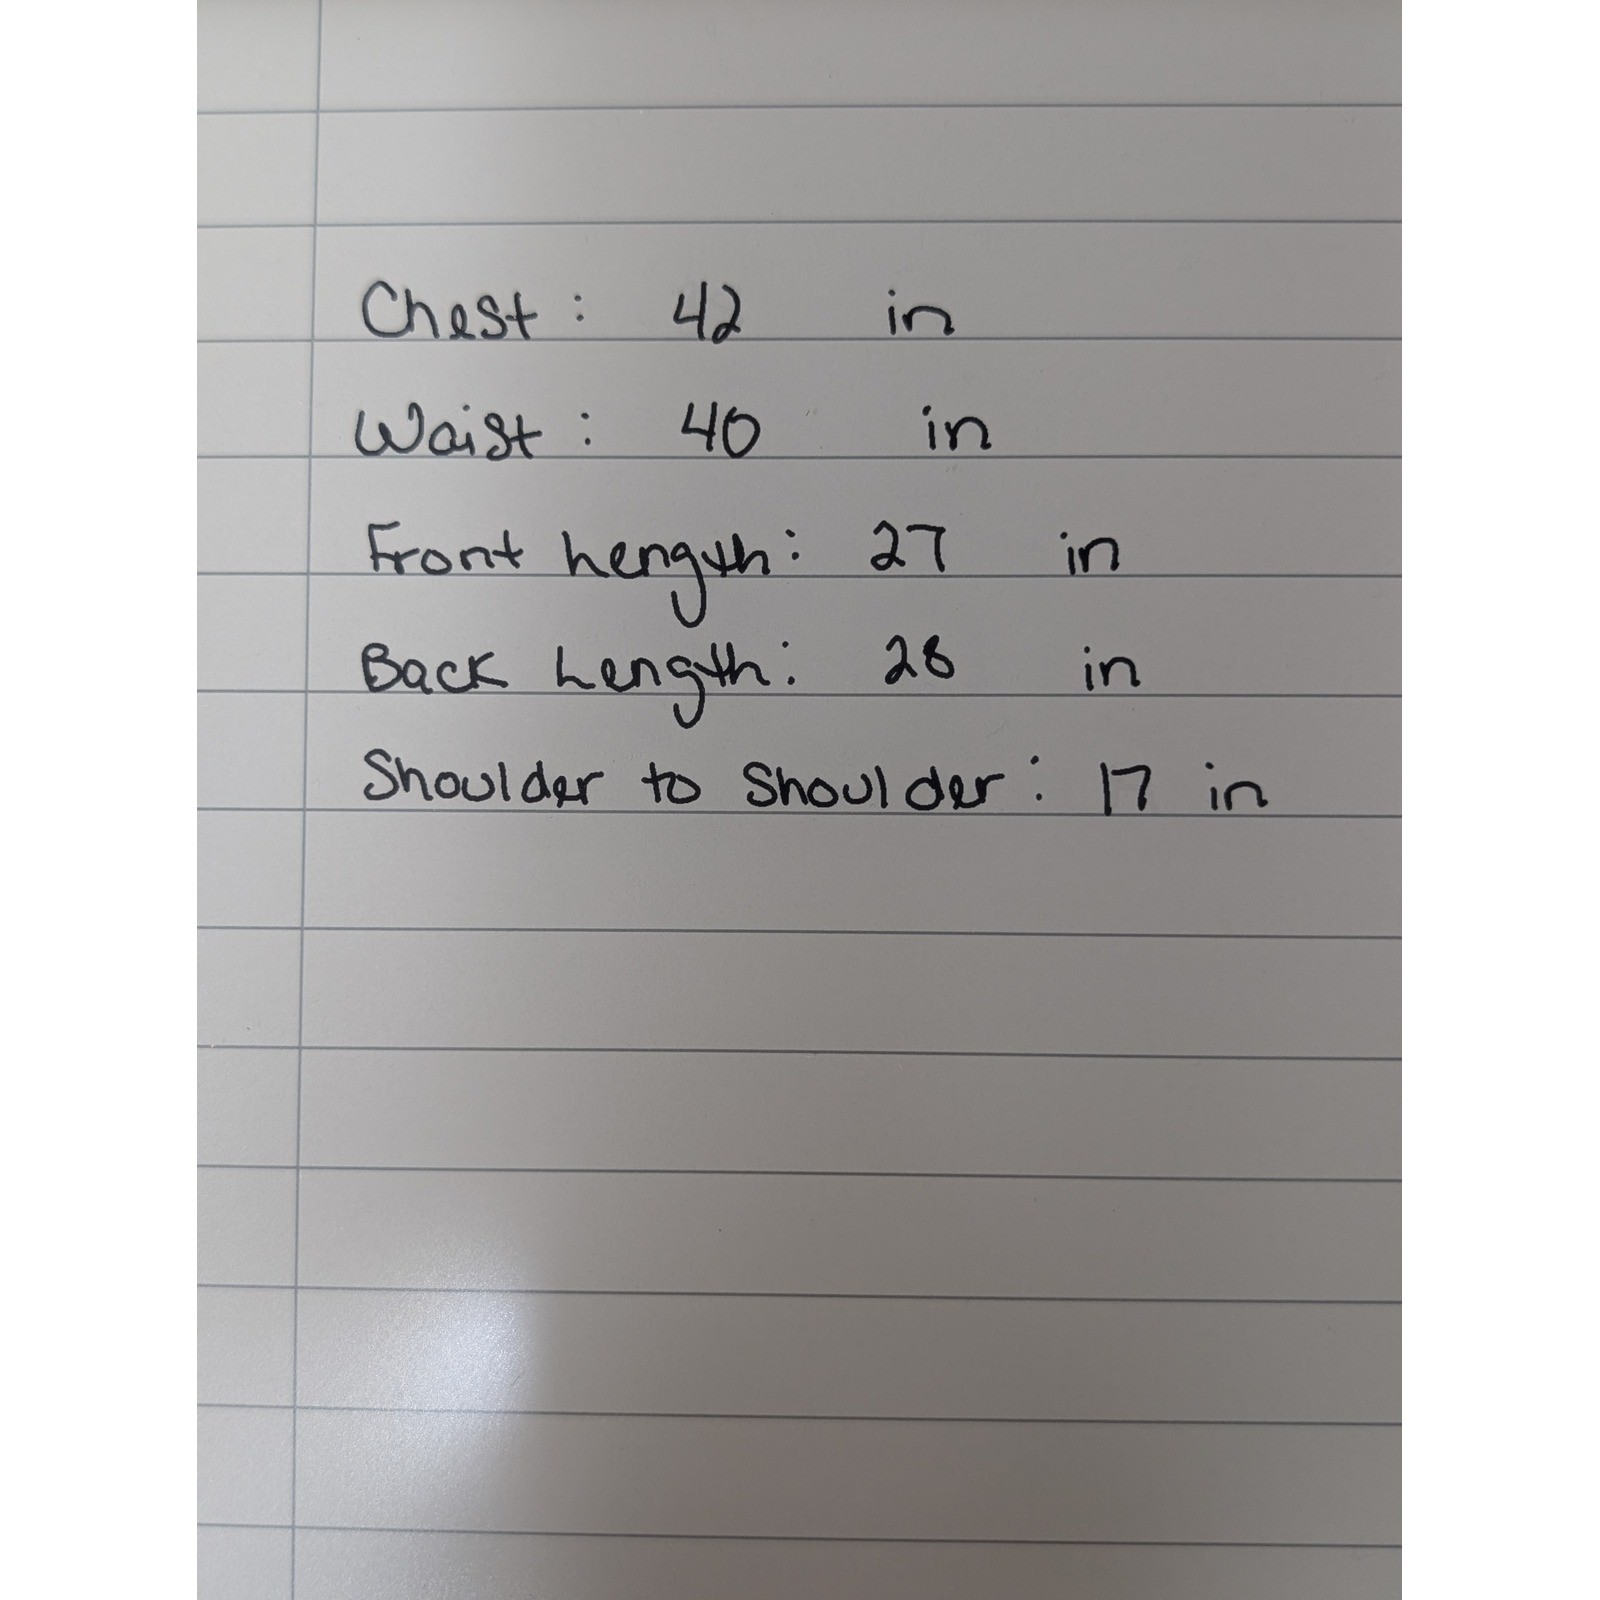 Chest: 42 in
Waist: 40 in
Front Length: 27 in
Back Length: 28 in
Shoulder to Shoulder: 17 in